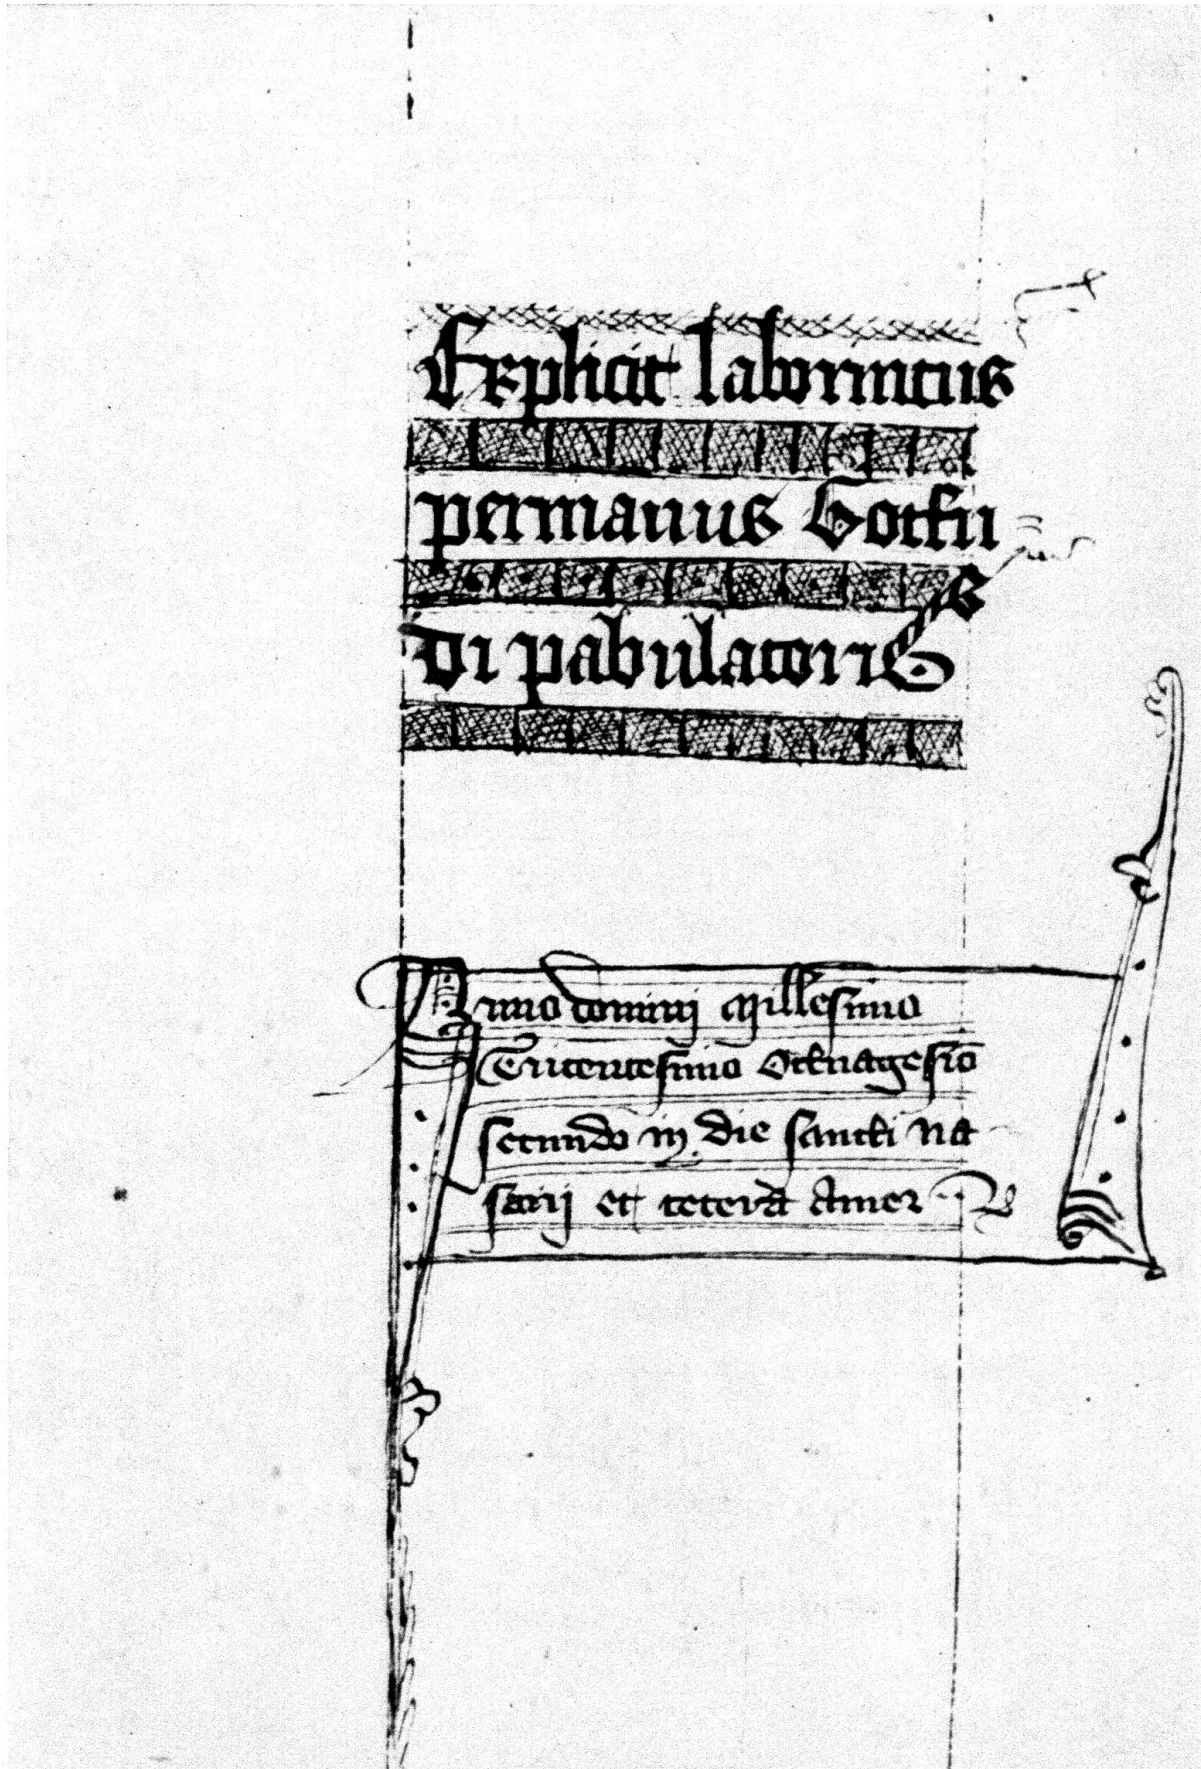 Explicit laborintus
permanus Gotfri
di pabulatoris
Anno domini Millesimo
Tricentesimo Octuagesiō
secundo in die sancti na
sarij et cetera Amen